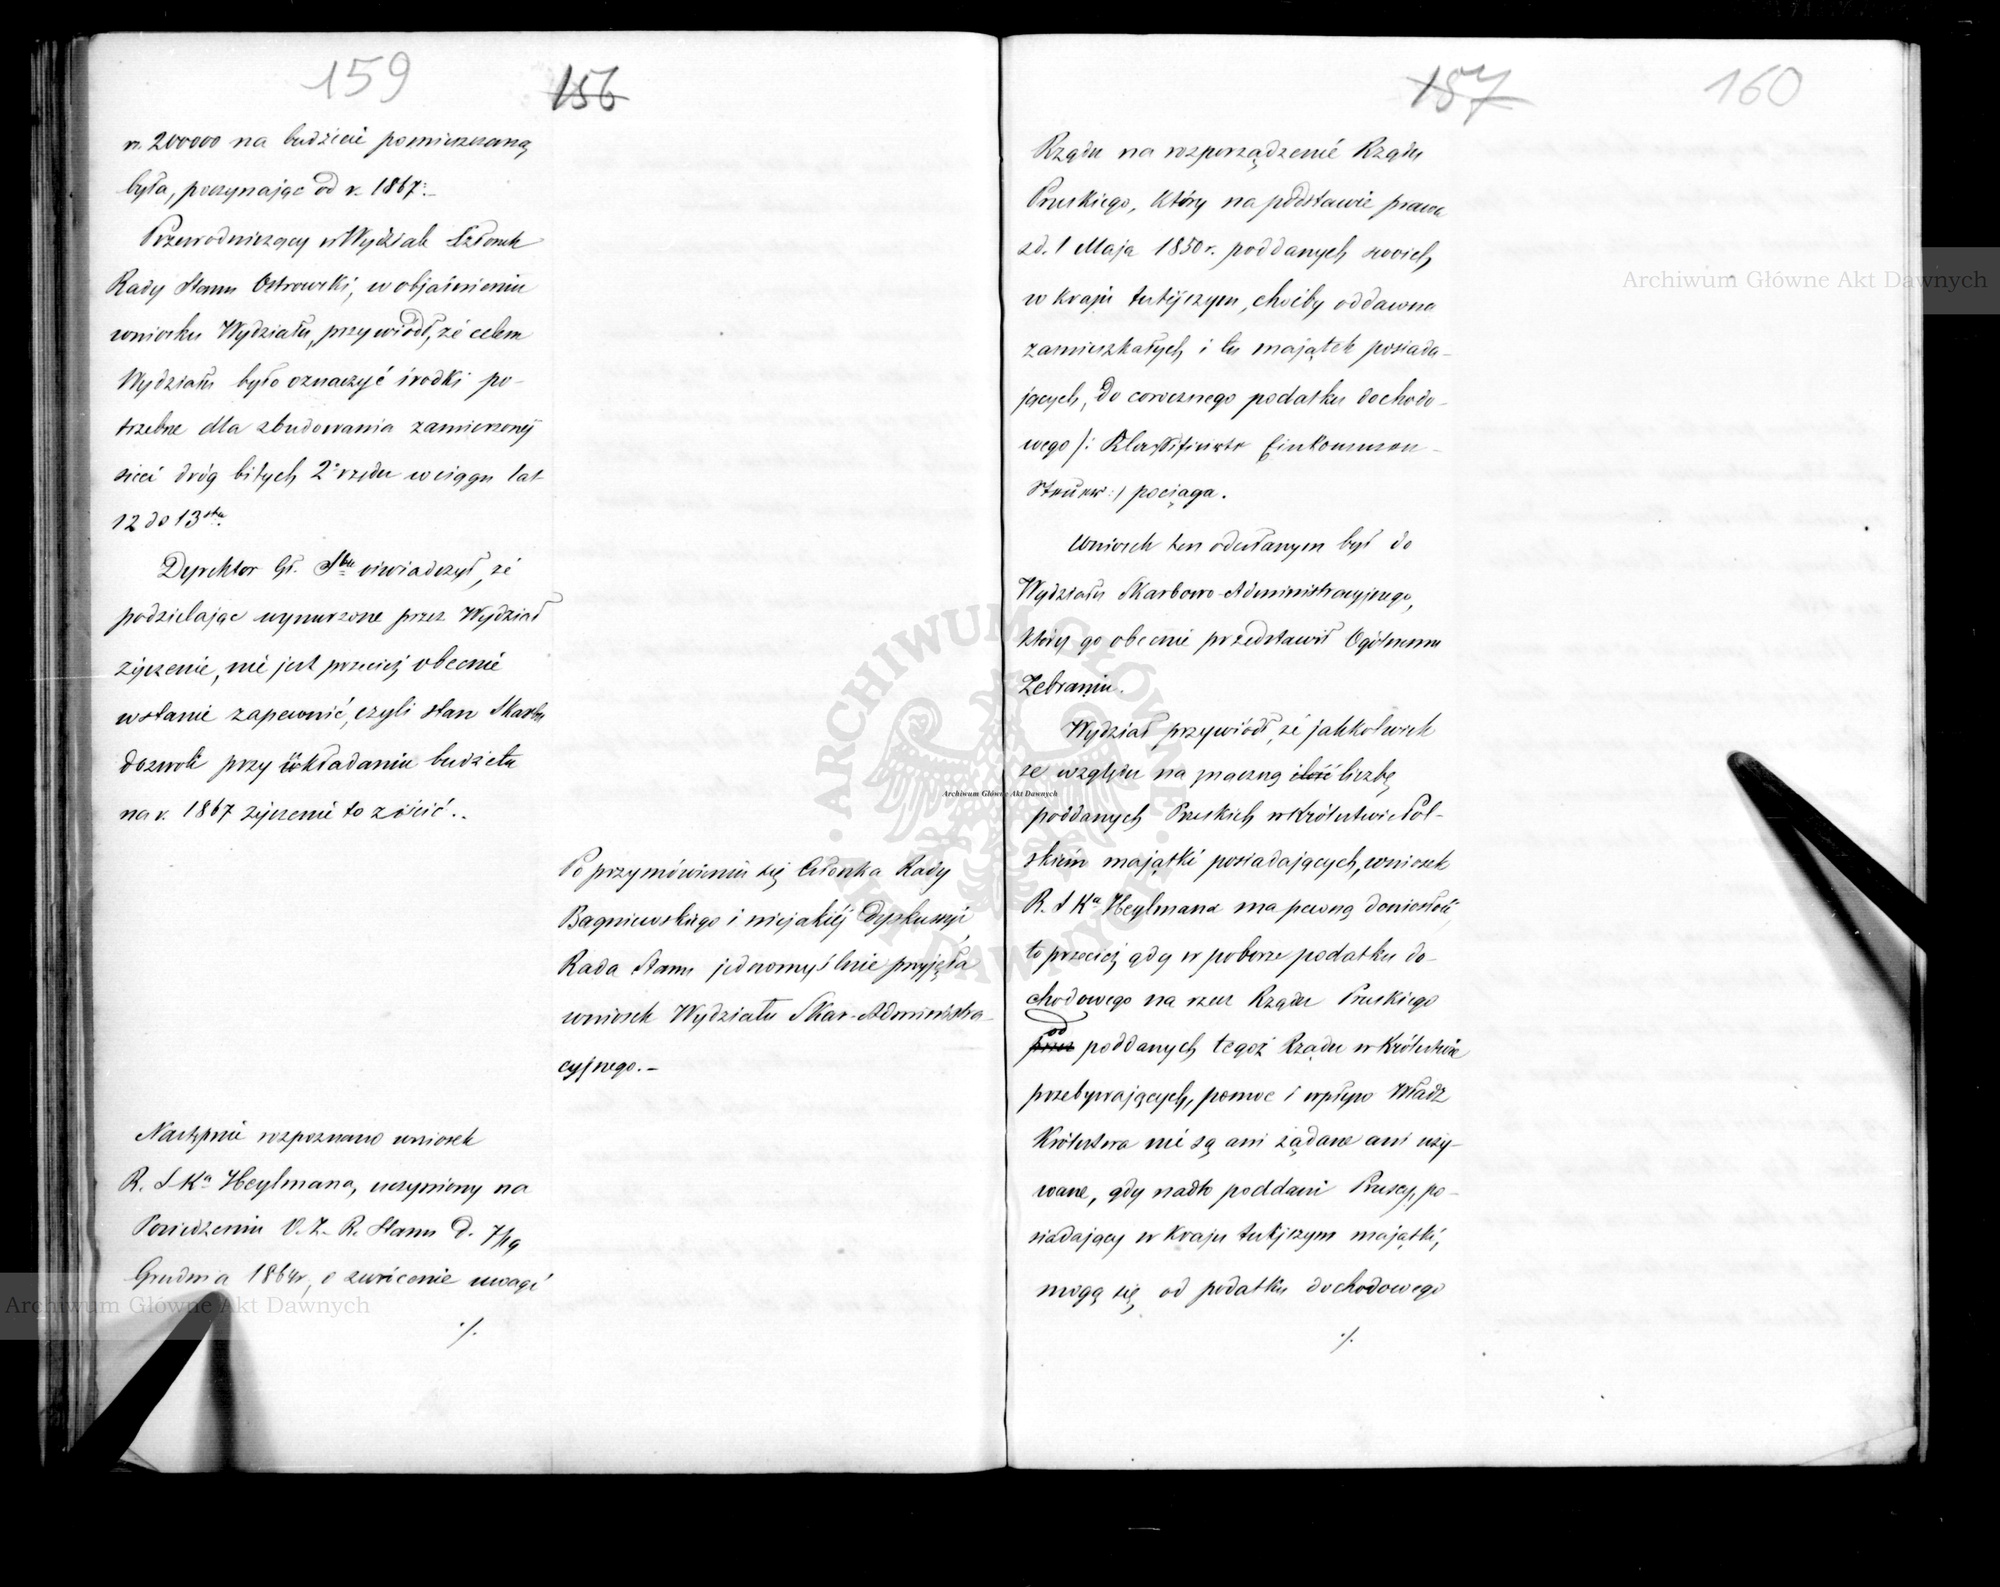 159
156
rs. 200000 na budżecie pomieszczoną
była, poczynając od r. 1867.
Przewodniczący w Wydziale Członek
Rady Stanu Ostrowski, w objaśnieniu
wniosku Wydziału, przywiódł, że celem
Wydziału było oznaczyć środki po-
trzebne dla zbudowania zamierzonéj
sieci dróg bitych 2° rzędu w ciągu lat
12 do 13stu
Dyrektor Gł. Sbu oświadczył, że
podzielając wynurzone przez Wydział
życzenie, nie jest przecież obecnie
w stanie zapewnić, czyli stan Skarbu
dozwoli przy układaniu budżetu
na r. 1867 życzenie to ziścić..
Po przymówieniu się Członka Rady
Bagniewskiego i niejakiéj dyskussyi,
Rada Stanu jednomyślnie przyjęła
wniosek Wydziału Skar-Administra-
cyjnego.-
Następnie rozpoznano wniosek
R. S Ka Heylmana, uczyniony na
Posiedzeniu O. Z. R. Stanu d. 7/19
Grudnia 1864r, o zwrócenie uwagi
./.
157
160
Rządu na rozporządzenie Rządu
Pruskiego, który na podstawie prawa
z d. 1 Maja 1850 r. poddanych swoich,
w kraju tutéjszym, choćby oddawna
zamieszkałych i tu majątek posiada-
jących, do corocznego podatku dochodo-
wego /: Klassificirte Einkommen-
Steuer :/ pociąga.
Wniosek ten odesłanym był do
Wydziału Skarbowo-Administracyjnego,
który go obecnie przedstawił Ogólnemu
Zebraniu.
Wydział przywiódł, że jakkolwiek
ze względu na znaczną ilość liczbę
poddanych Pruskich w Królestwie Pol-
skiém majątki posiadających, wniosek
R. S Ka Heylmana ma pewną doniosłość,
to przecież gdy w poborze podatku do-
chodowego na rzecz Rządu Pruskiego
przez od poddanych tegoż Rządu w Królestwie
przebywających, pomoc i wpływ Władz
Królestwa nie są ani żądane ani uży-
wane, gdy nadto poddani Pruscy, po-
siadający w Kraju tutéjszym majątki,
mogą się od podatku dochodowego
./.
Archiwum Główne Akt Dawnych
Archiwum Główne Akt Dawnych
Archiwum Główne Akt Dawnych
ARCHIWUM GŁÓWNE AKT DAWNYCH